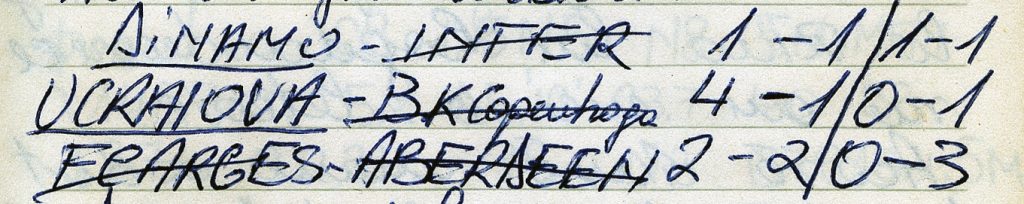 DiNAMO - INTER 1 - 1 / 1 - 1
UCRAIOVA - BK Copenhaga 4 - 1 / 0 - 1
FCARGES - ABERDEEN 2 - 2 / 0 - 3